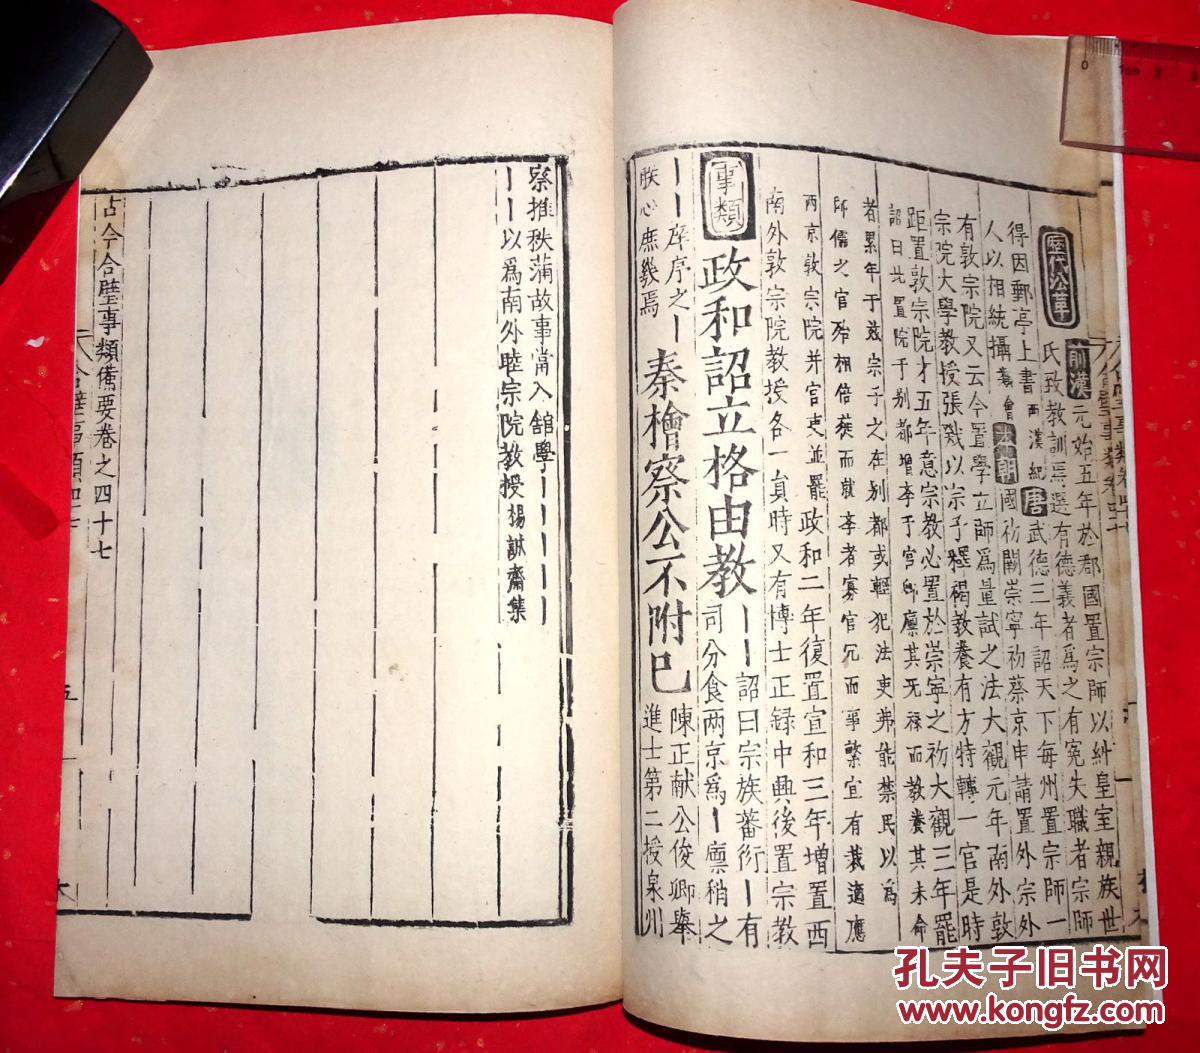 歷代沿革
前漢元始五年於郡國置宗師以糾皇室親族世
氏致教訓焉選有德義者爲之有寃失職者宗師
得因郵亭上書西漢紀唐武德三年詔天下每州置宗師一
人以相統攝義會本朝國初闕崇寧初蔡京申請置外宗外
有敦宗院又云今置學立師爲量試之法大觀元年南外敦
宗院大學教授張戩以宗子釋褐教養有方特轉一官是時
距置敦宗院才五年意宗教必置於崇寧之初大觀三年罷
詔曰比置院于别都增李于宫師廪其无禄而教養其未命
者累年于兹宗子之在别都或輕犯法吏弗能禁民以爲
師儒之官殆相倍蓰而就李者寡官冗而事繁宜有裁適應
兩京敦宗院并官吏並罷政和二年復置宣和三年增置西
南外敦宗院教授各一員時又有博士正録中興後置宗教
事類
政和詔立格由教
丨丨詔曰宗族蕃衍丨有
司分食兩京爲丨廪稍之
丨丨庠序之丨
朕心庶幾焉
秦檜察公不附已
陳正献公俊卿舉
進士第二授泉州
察推秩蒲故事當入館學丨丨丨丨丨
丨丨以爲南外睦宗院教授楊誠齋集
古今合璧事類備要卷之四十七
五
孔夫子旧书网
KONGFZ.COM
0